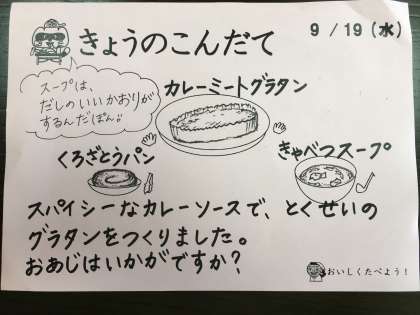 きょうのこんだて
9/19(水)
スープは、
だしのいいかおりが
するんだぽん♪
カレーミートグラタン
くろざとうパン
きゃべつスープ
スパイシーなカレーソースで、とくせいの
グラタンをつくりました。
おあじはいかがですか?
おいしくたべよう!